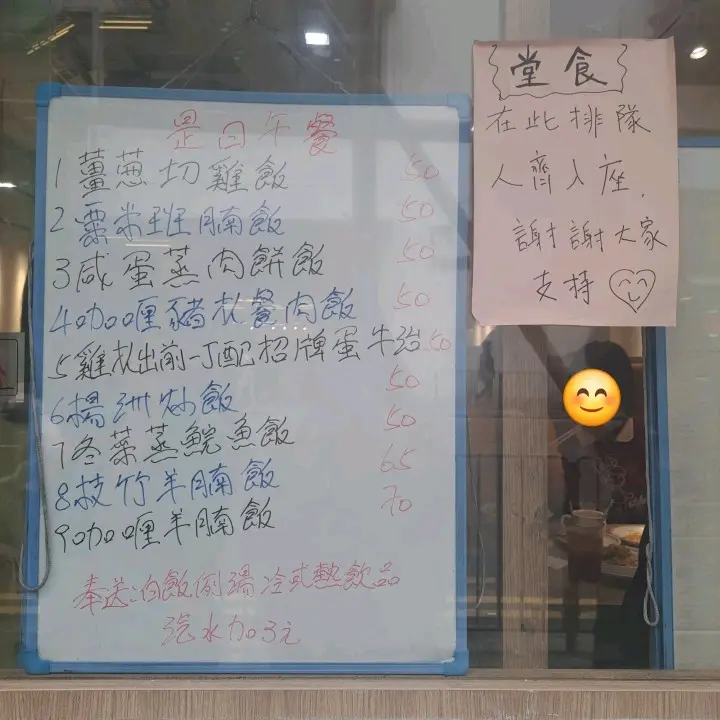 是日午餐
1薑蔥切雞飯 50
2粟米班腩飯 50
3咸蛋蒸肉餅飯 50
4咖喱豬扒餐肉飯 50
5雞扒出前一丁配招牌蛋牛治 50
6楊洲炒飯 50
7冬菜蒸鯇魚飯 50
8枝竹羊腩飯 65
9咖喱羊腩飯 70
奉送:白飯例湯冷或熱飲品
汽水加3元
堂食
在此排隊
人齊入座.
謝謝大家
支持